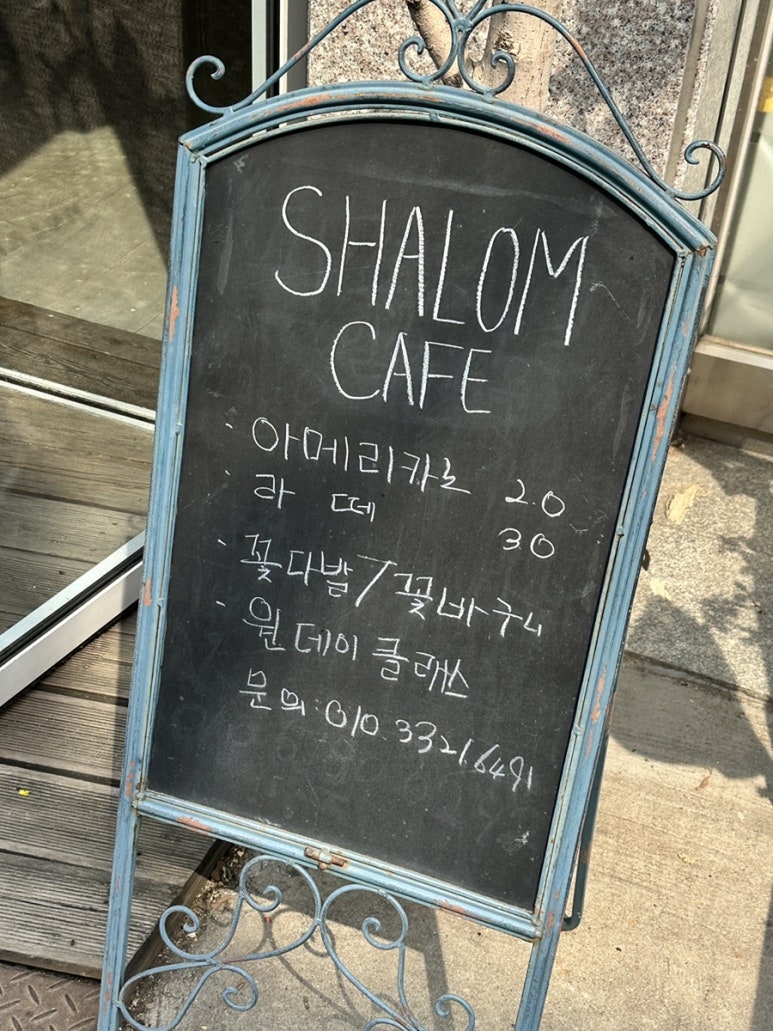 SHALOM
CAFE
· 아메리카노 2.0
· 라 떼 3.0
· 꽃다발 / 꽃바구니
· 원데이 클래스
문의 : 010. 3321.6491